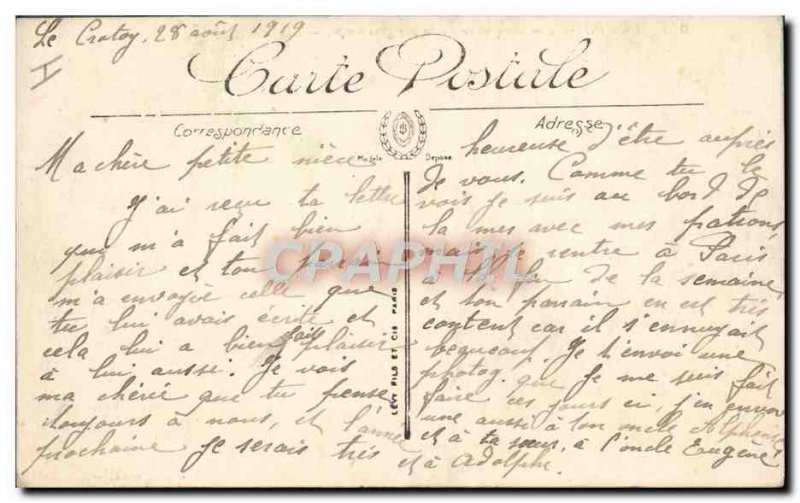 Le Crotoy, 28 août 1919
Carte Postale
Correspondance
Adresse
Modèle Déposé
Ma chère petite nièce
J'ai reçu ta lettre
qui m'a fait bien
plaisir et ton
m'a envoyée celle que
tu lui avais écrite et
cela lui a bien fait plaisir
à lui aussi. Je vois
ma chérie que tu pense
toujours à nous, et l'année
prochaine je serais très
LÉVY FILS ET CIE PARIS
heureuse d'être auprès
de vous. Comme tu le
vois je suis au bord de
la mer avec mes patrons,
mais je rentre à Paris
à la fin de la semaine,
et ton parrain en est très
content car il s'ennuyait
beaucoup. Je t'envoi une
photog. que je me suis fait
faire ces jours ci, j'en envoi
une aussi à ton oncle Alphonse
et à ta sœur, à l'oncle Eugène
et à Adolphe.
CPAPHIL